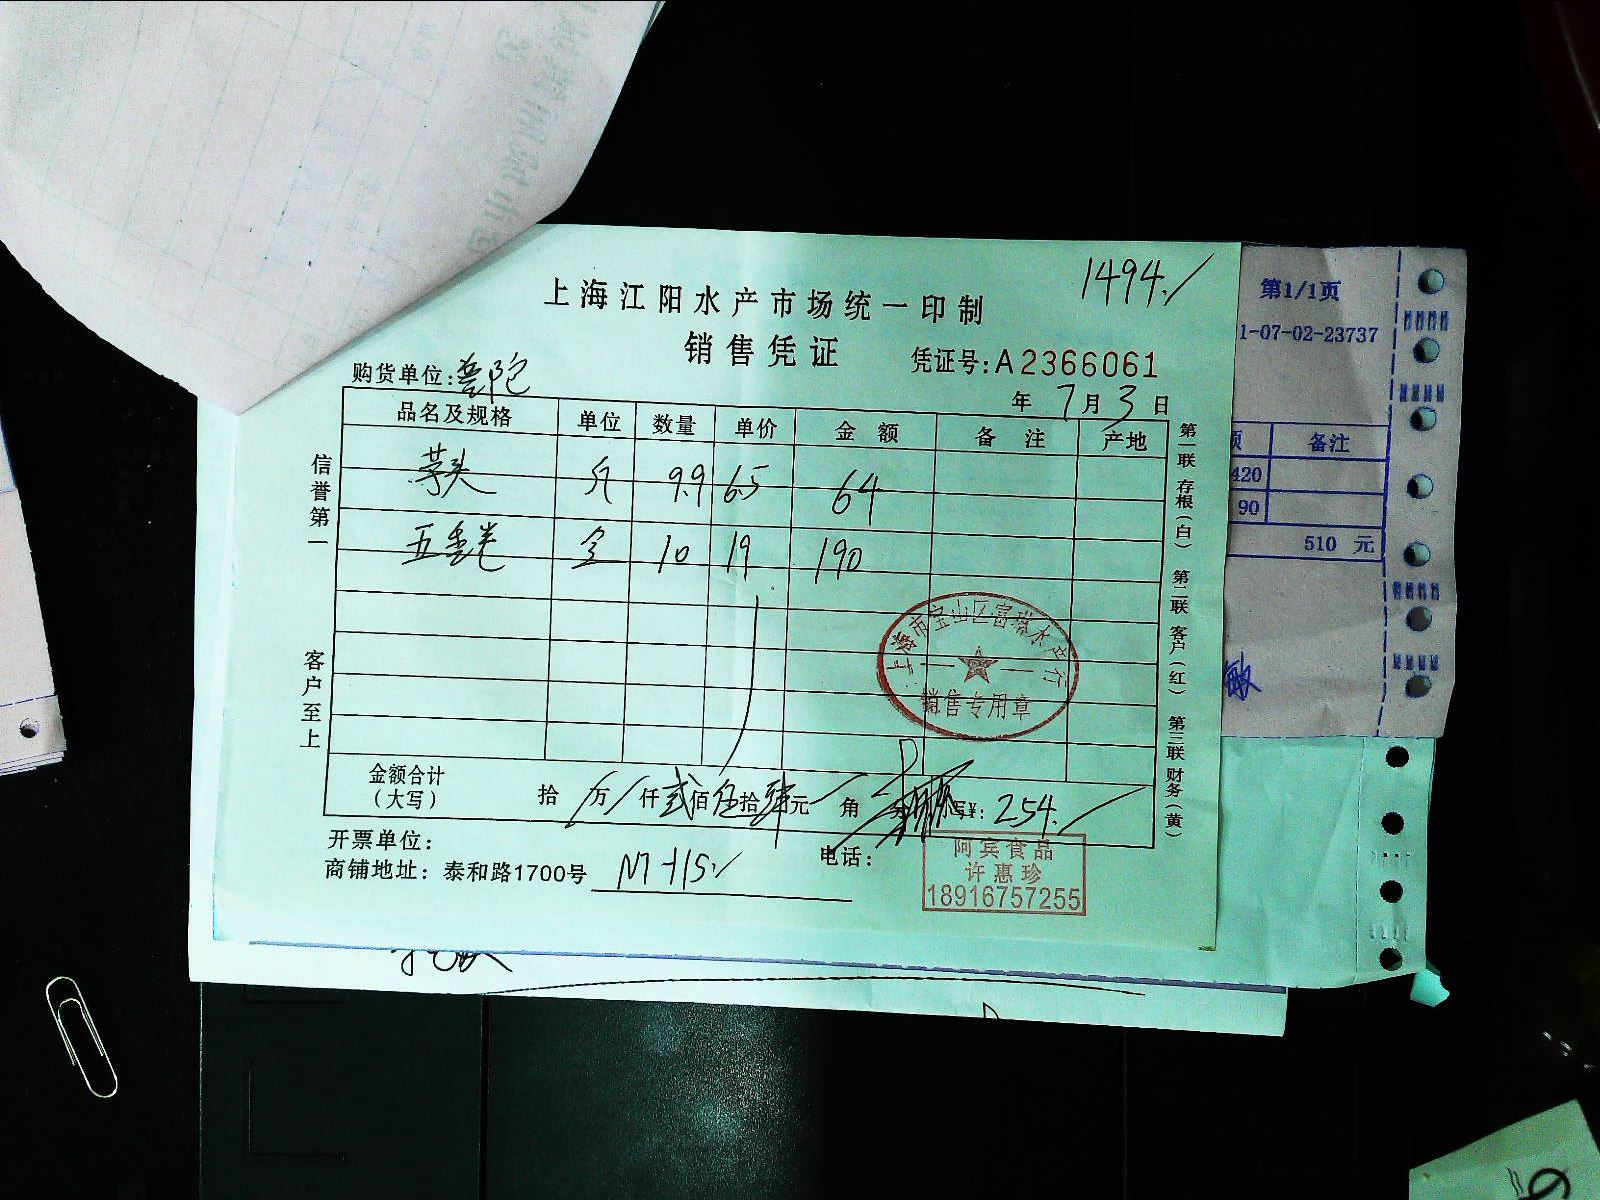 1494./
上海江阳水产市场统一印制
销售凭证
凭证号:A2366061
购货单位:普陀
年 7月3日
品名及规格 单位 数量 单价 金额 备注 产地
芋头 斤 9.9 6.5 64
五香卷 10 19 190
金额合计(大写) 拾 万 仟 贰佰 伍拾 肆元 角 分 写¥: 254.
开票单位:
电话:
商铺地址: 泰和路1700号 M-115./
信誉第一
客户至上
第一联 存根(白) 第二联 客户(红) 第三联 财务(黄)
上海市宝山区富琳水产行
销售专用章
阿宾食品
许惠珍
18916757255
第1/1页
1-07-02-23737
备注
420
90
510 元
敏